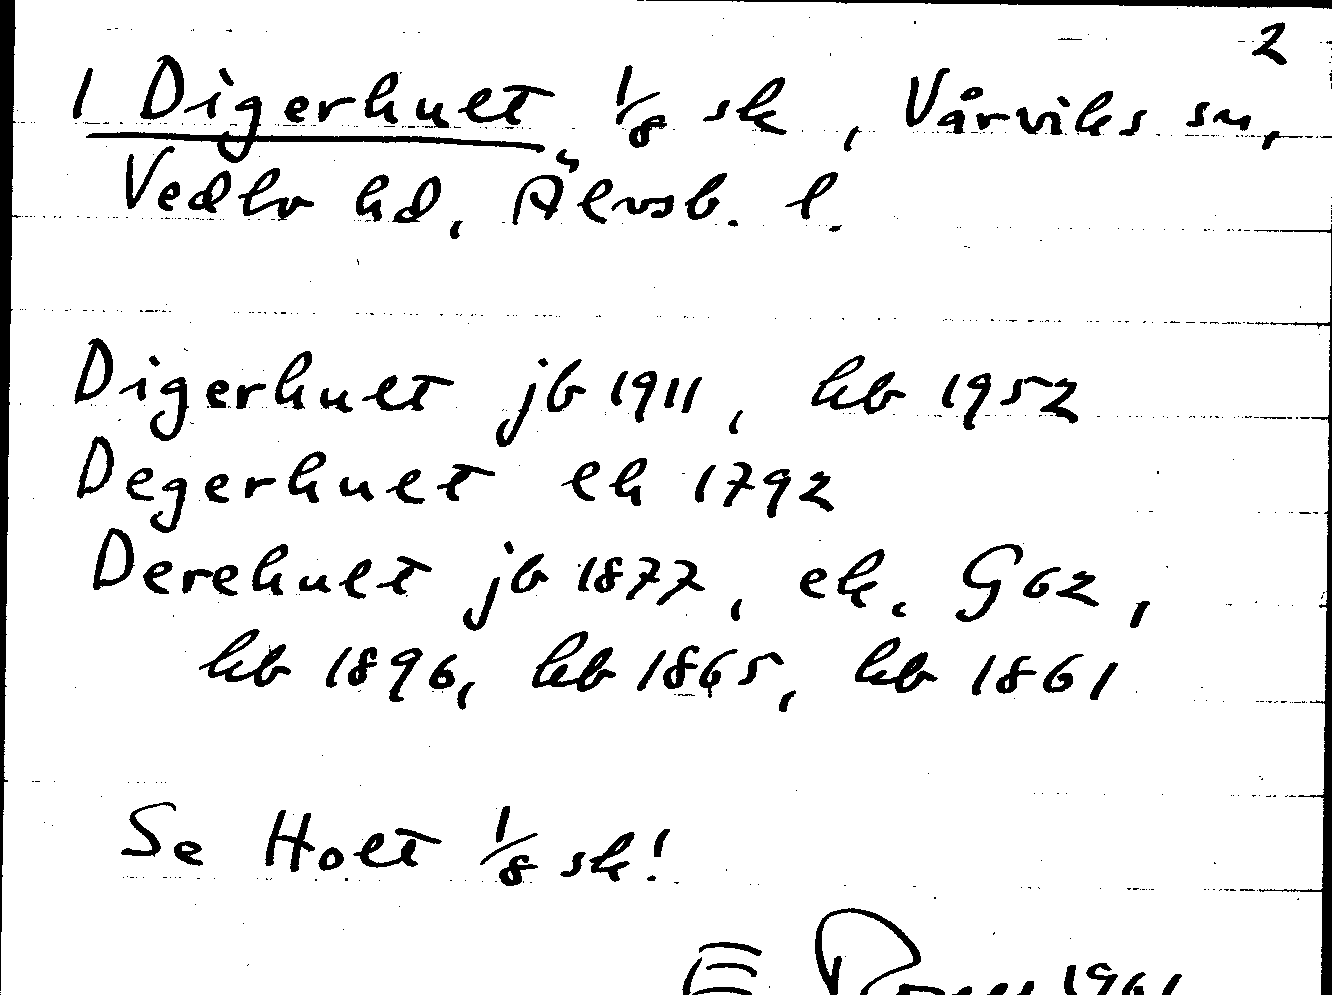 2
1 Digerhult, 1/8 sk, Vårviks sn,
Vedbo hd, Älvsb. l.
Digerhult jb 1911, hb 1952
Degerhult ek 1792
Derehult jb 1877, ek. G62,
hb 1896, hb 1865, hb 1861
Se Holt 1/8 sk!
E 1961